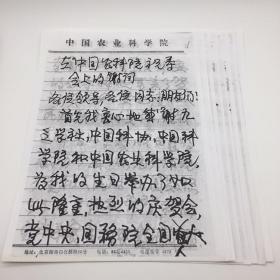 中国农业科学院
在中国农科院祝寿
会上的谢词
各位领导、各位同志、朋友们：
首先我衷心地感谢九
三学社，中国科协，中国科
学院和中国农业科学院，
为我的生日举办了如
此隆重，热烈的庆贺会，
党中央，国务院，全国人大